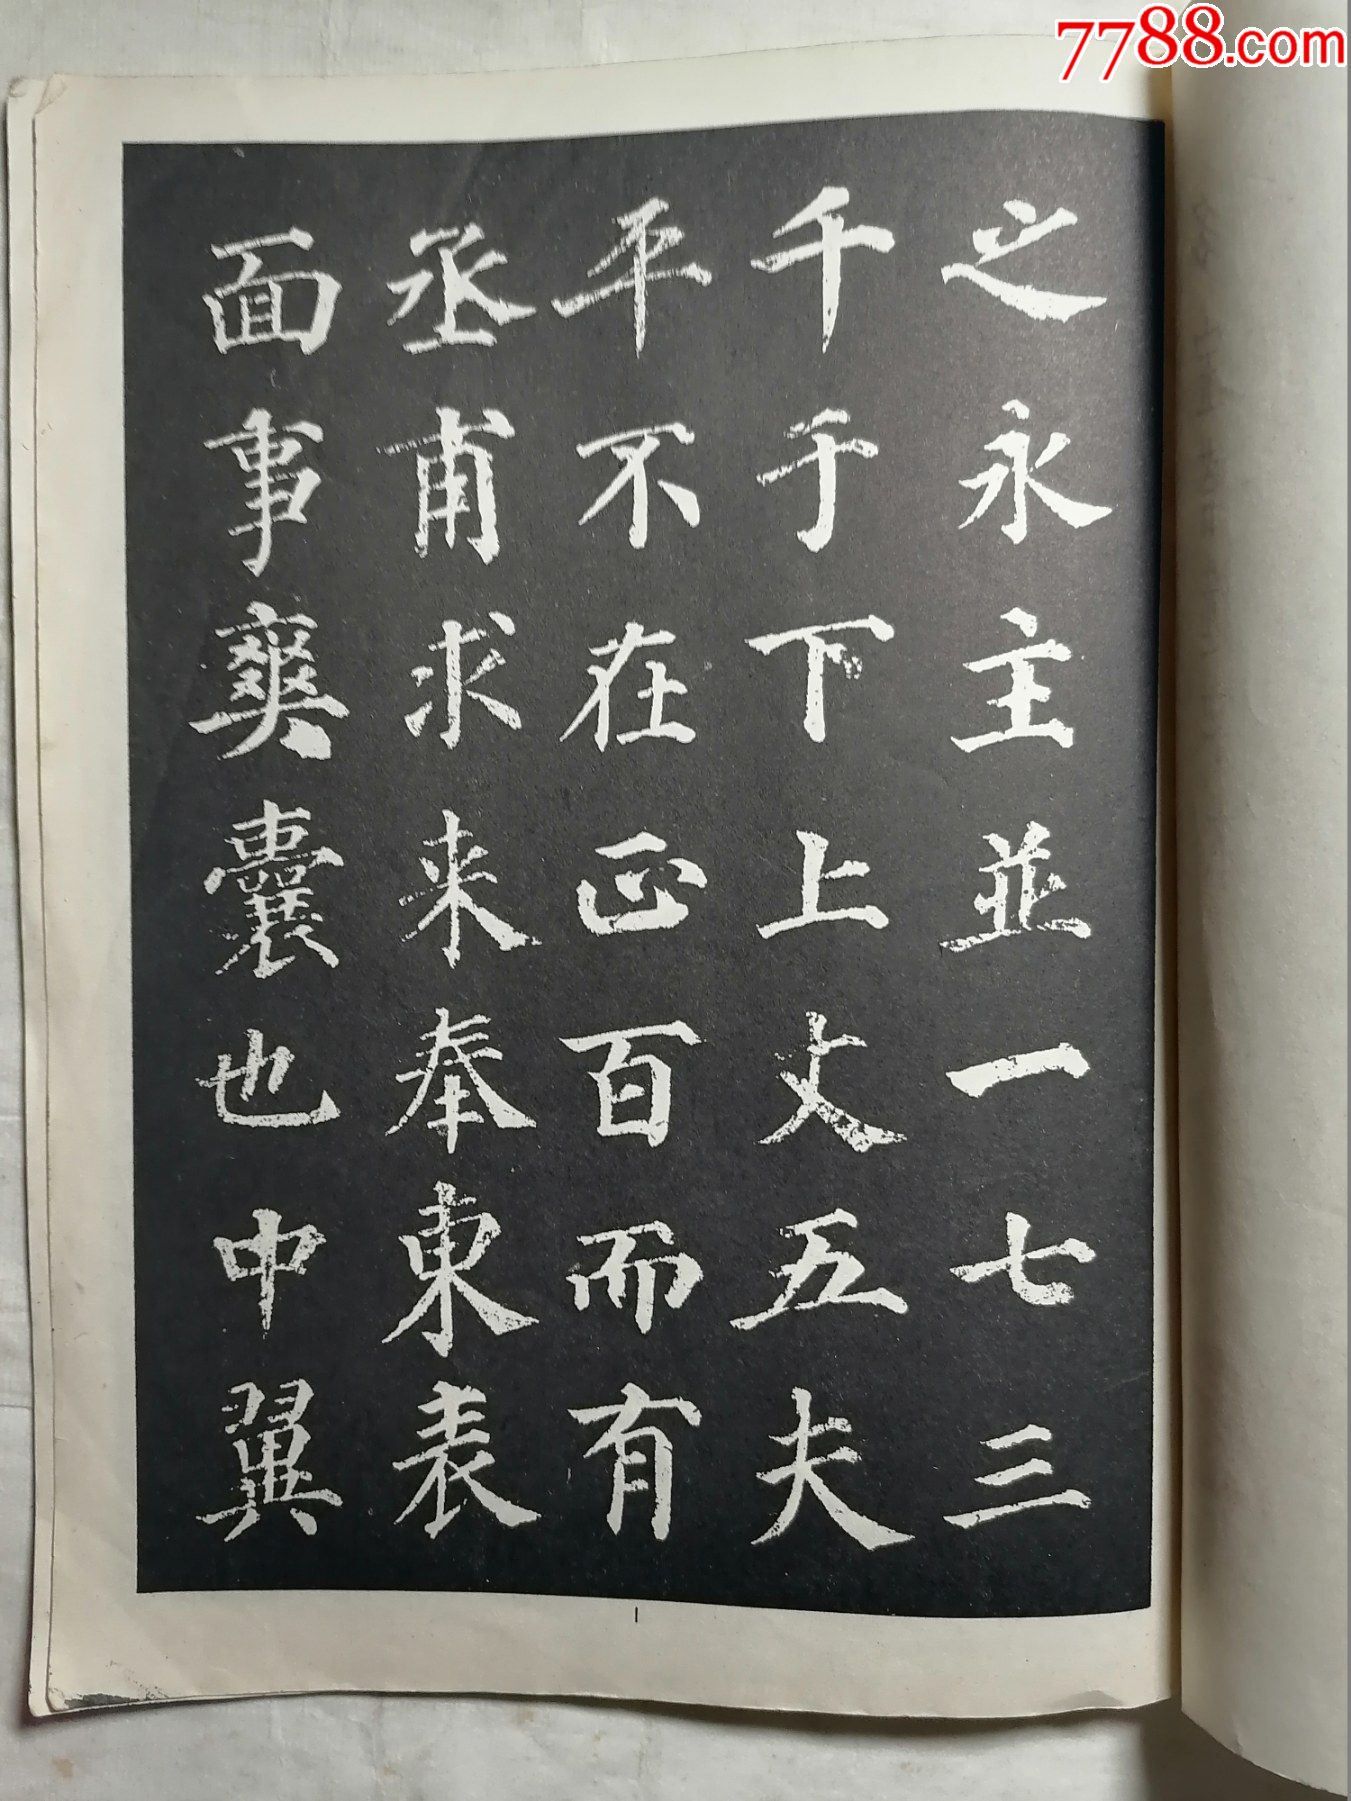 7788.com
之永主並一七三
千于下上丈五夫
平不在正百而有
丞甫求来奉東表
面事爽囊也中翼
1